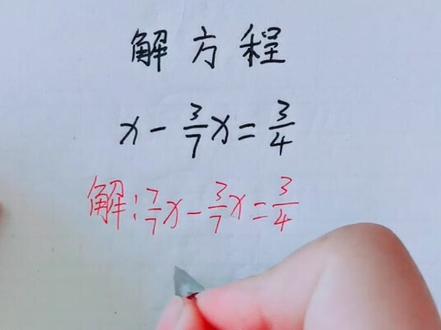 解方程
x - 3/7 x = 3/4
解: 7/7 x - 3/7 x = 3/4